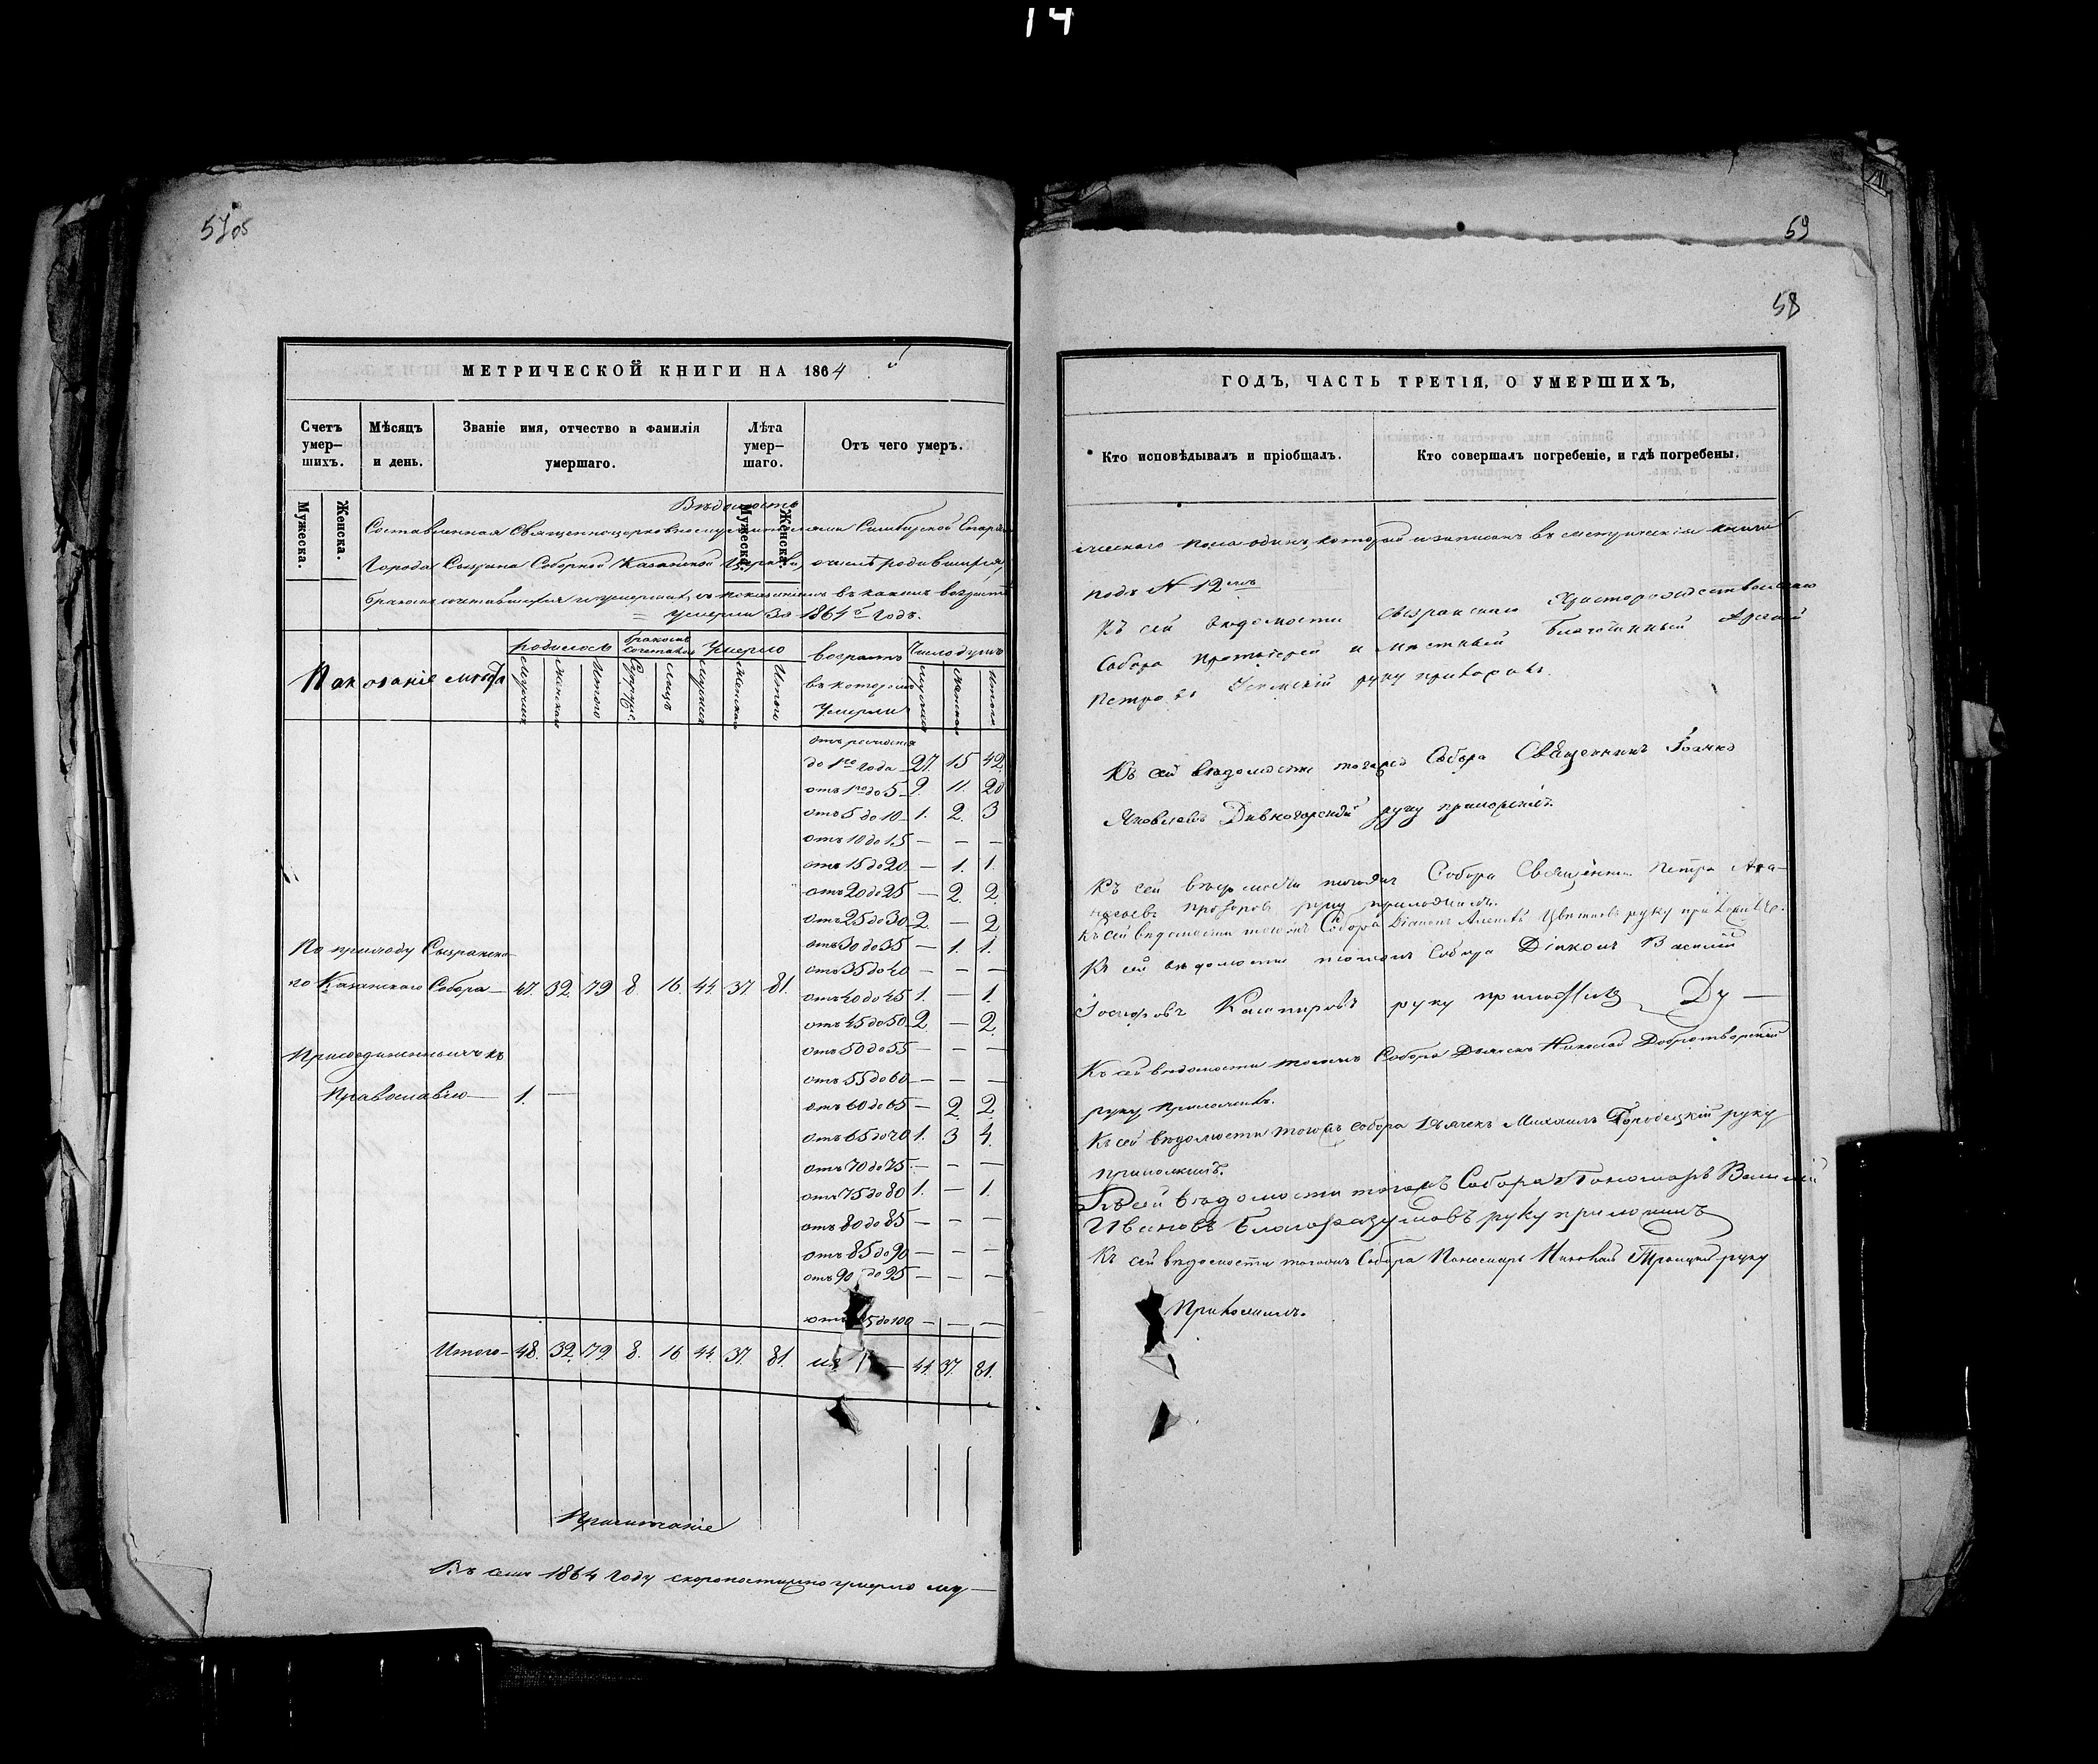 14
57об
МЕТРИЧЕСКОЙ КНИГИ НА 1864 й
Счетъ умер-шихъ.
Мѣсяцъ и день.
Званіе имя, отчество и фамилія умершаго.
Лѣта умер-шаго.
Отъ чего умеръ.
Мужеска.
Женска.
Мужеска.
Женска.
Вѣдомость
Составленная Священноцерковнослужителями Симбирской Епархіи
Города Сызрана Соборной Казанской Церкви, о числѣ родившихся,
бракомъ сочетавшихся и умершихъ, съ показаніемъ въ какомъ возрастѣ
= умерли за 1864й Годъ.
родилось
бракомъ сочетавш
Умерло
возрастъ
Число душъ
въ которомъ
Умерли
Мужеска
Женска
Итого
Супруж.
Лицъ
Мужска
Женска
Итого
Мужска
Женска
Итого
отъ рожденія
до 1го года 27. 15 42
отъ 1го до 5 9. 11. 20
отъ 5 до 10 1. 2. 3
отъ 10 до 15 — — —
отъ 15 до 20 — 1. 1.
отъ 20 до 25 — 2. 2.
отъ 25 до 30 2. — 2
отъ 30 до 35 — 1. 1.
По приходу Сызранска-
отъ 35 до 40 — — —
го Казанскаго Собора — 47. 32. 79 8. 16. 44. 37. 81.
отъ 40 до 45 1. — 1.
отъ 45 до 50 2. — 2.
Присоединенныхъ къ
отъ 50 до 55 — — —
отъ 55 до 60 — — —
Православію — 1. —
отъ 60 до 65 — 2. 2
отъ 65 до 70 1. 3 4.
отъ 70 до 75 — — —
отъ 75 до 80 1. — 1.
отъ 80 до 85 — — —
отъ 85 до 90 — — —
отъ 90 до 95 — — —
5 до 100 — — —
Итого — 48. 32. 79. 8. 16 44. 37. 81. 44. 37. 81.
Примѣчаніе
Въ семъ 1864 Году скоропостижно умерло му—
59
58
ГОДЪ, ЧАСТЬ ТРЕТІЯ, О УМЕРШИХЪ,
Кто исповѣдывалъ и пріобщалъ.
Кто совершалъ погребеніе, и гдѣ погребены.
жескаго пола одинъ, который и записанъ въ метрической книгѣ
подъ N 12мъ
Къ сей вѣдомости Сызранскаго Христорождественскаго
Собора протоіерей и мѣстный благочинный
Петровъ руку приложилъ.
Къ сей вѣдомости тогожъ Собора Священникъ Іоаннъ
Яковлевъ Дивногорскій руку приложилъ.
Къ сей вѣдомости тогожъ Собора Священникъ Петръ Аѳа-
насьевъ руку приложилъ.
Къ сей вѣдомости тогожъ Собора Діаконъ Цвѣтковъ руку приложилъ.
Къ сей вѣдомости тогожъ Собора Діаконъ Василій
Іосифовъ руку приложилъ
Къ сей вѣдомости тогожъ Собора Дьячекъ Николай Добротворскій
руку приложилъ.
Къ сей вѣдомости тогожъ собора Дьячекъ Михаилъ Городецкій руку
приложилъ.
Къ сей вѣдомости тогожъ Собора Пономарь Василій
Ивановъ Благоразумовъ руку приложилъ
Къ сей вѣдомости тогожъ Собора Пономарь Николай Троицкій руку
Приложилъ.